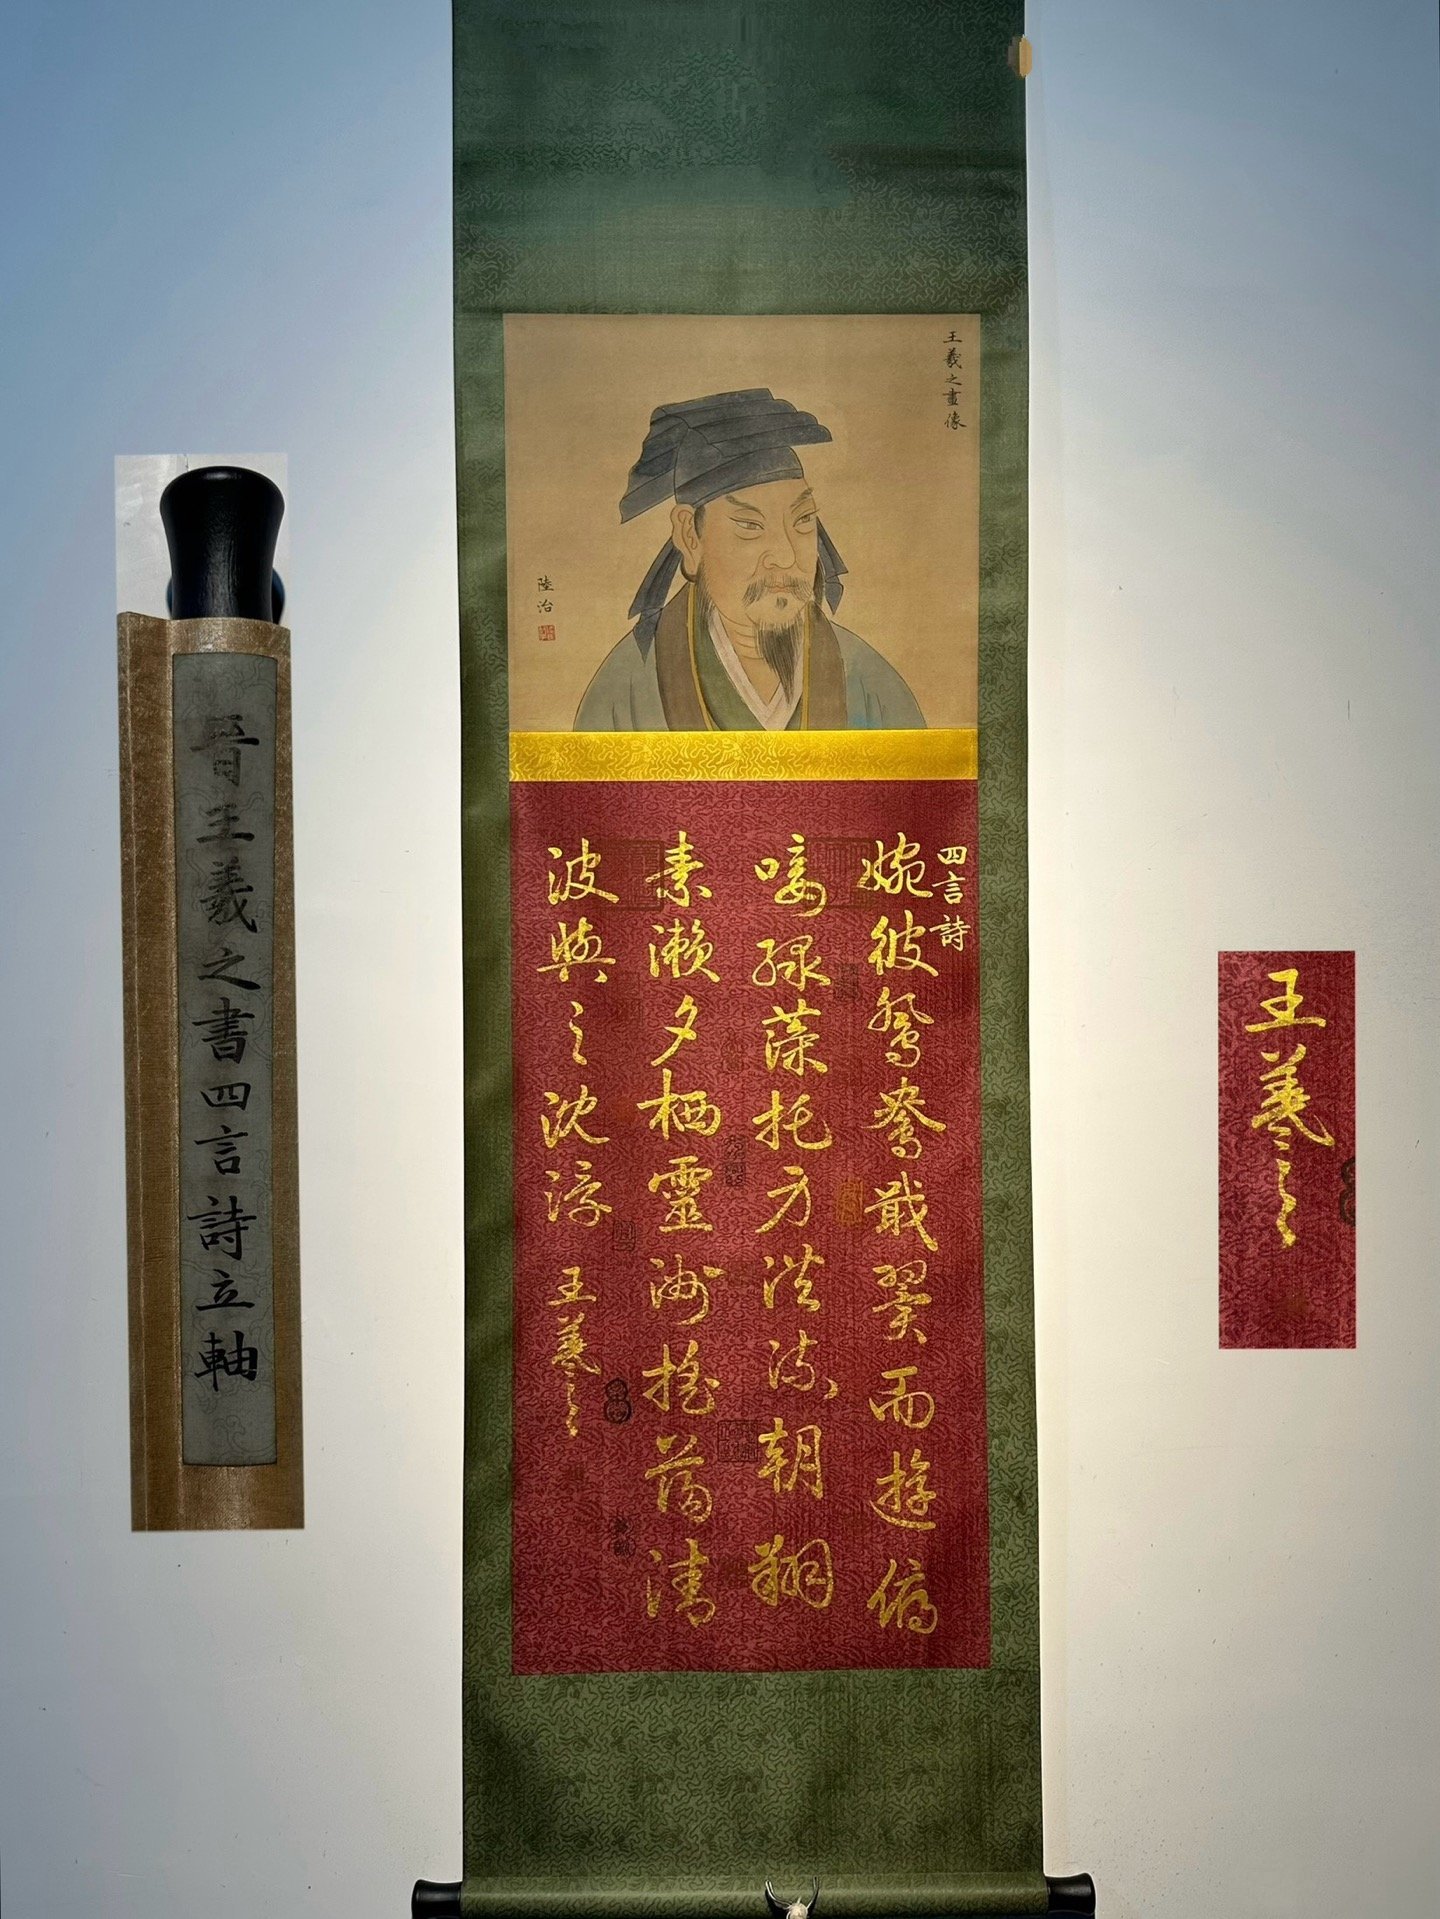 王羲之畫像
陸治
四言詩
婉彼鴛鴦戢翼而遊俯
唼綠藻托身洪流朝翔
素瀨夕栖靈洲搖蕩清
波與之沈浮 王羲之
晉王羲之書四言詩立軸
王羲之